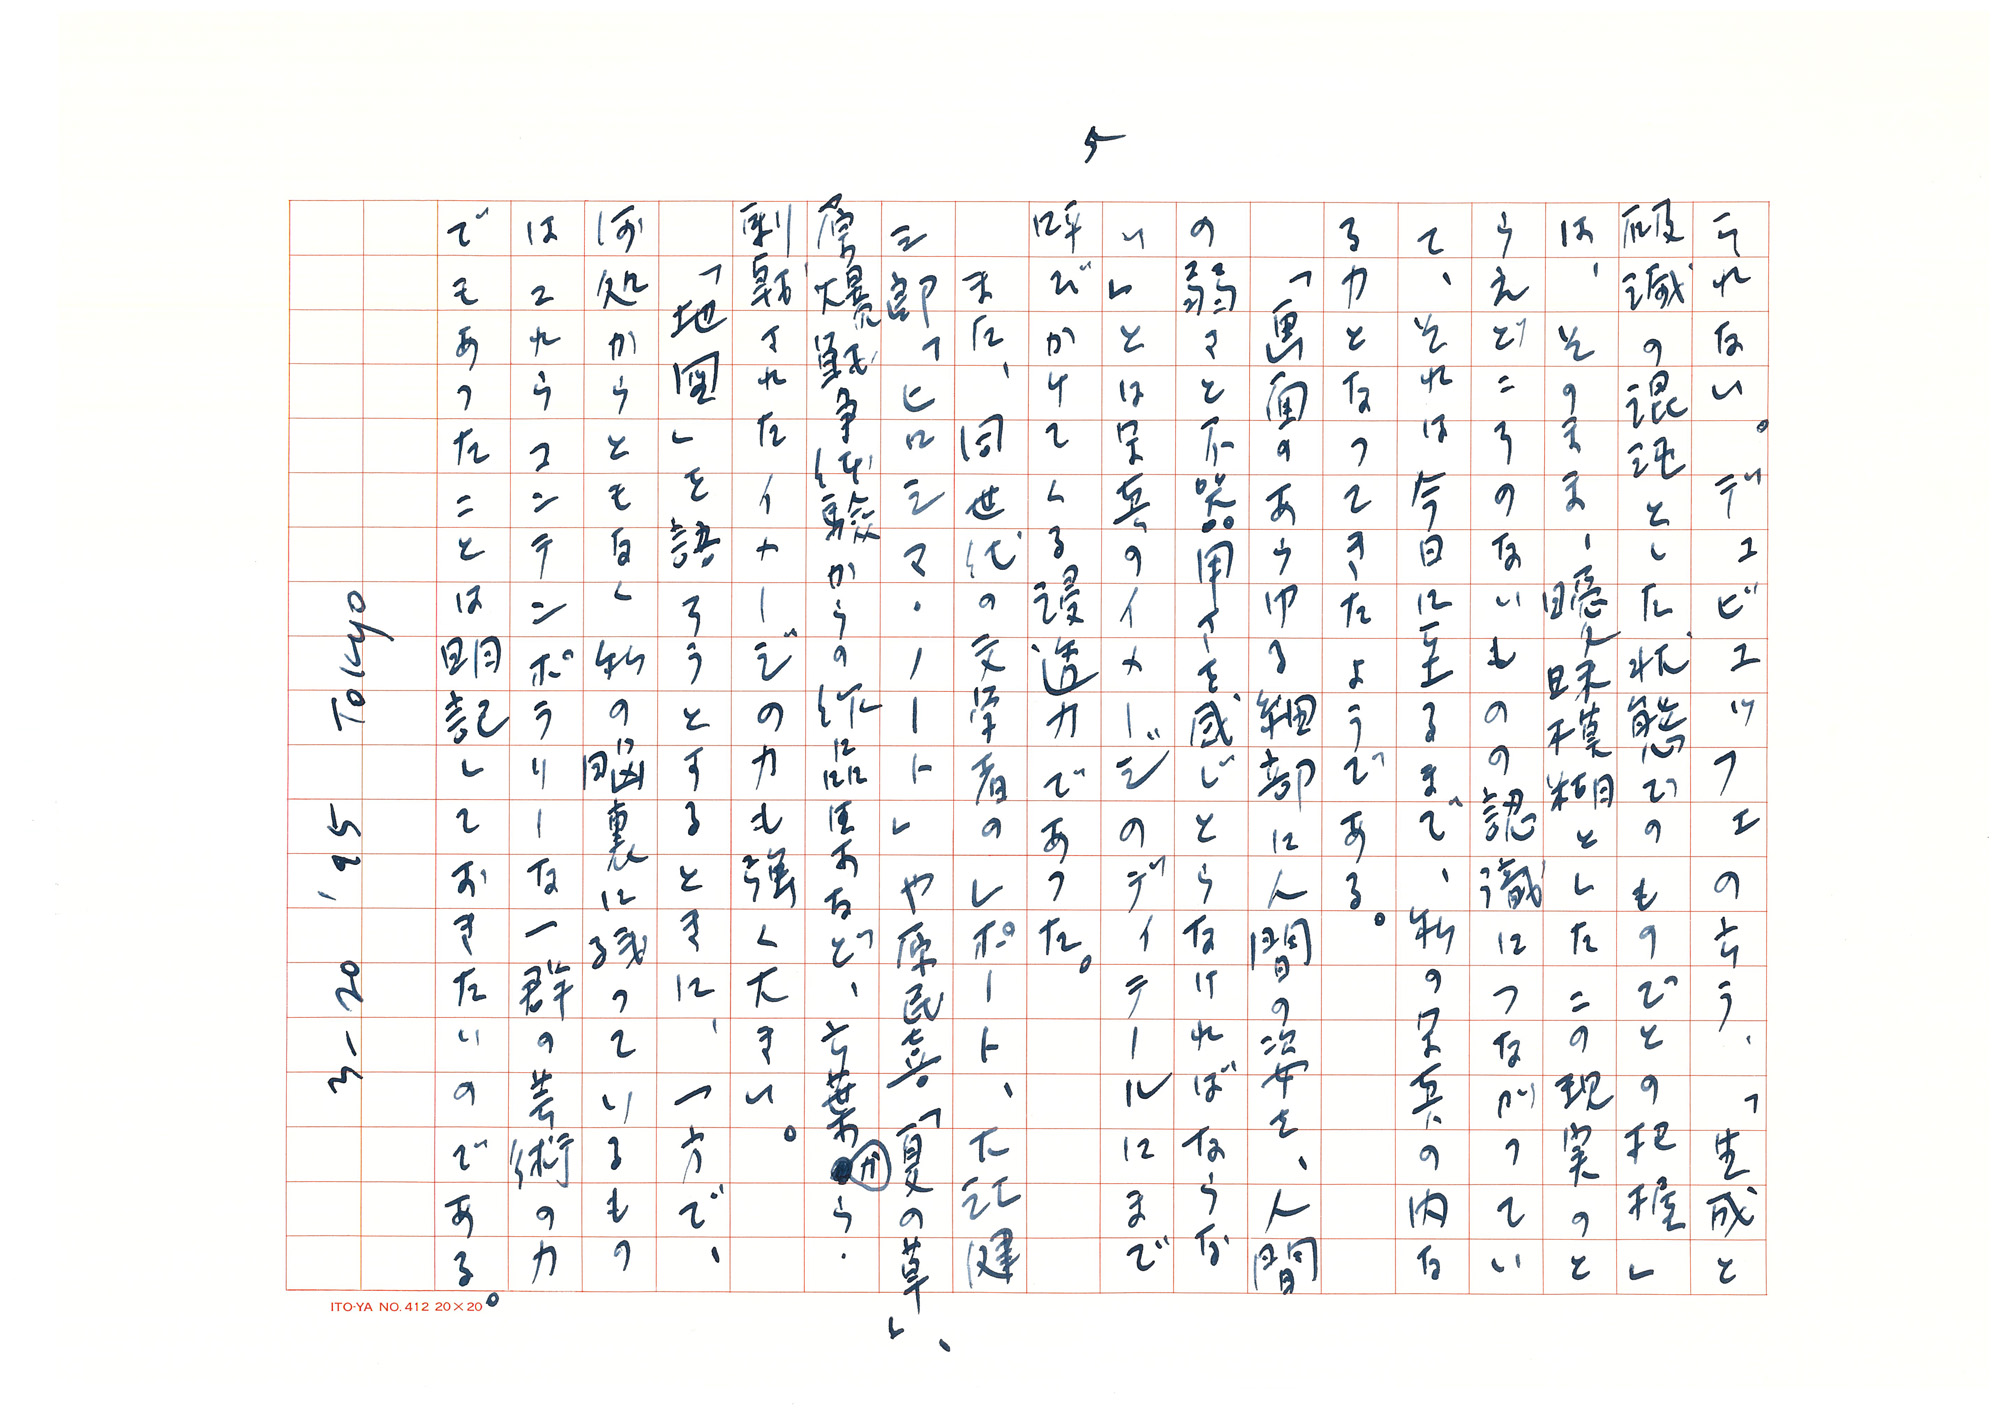 5
られない。デュビュッフェの言う、「生成と
破滅の混沌とした状態でのものでとの把握し
は、そのまま、曖昧模糊としたこの現実のと
らえどころのないものの認識につながってい
て、それは今日に至るまで、私の栄真の内な
る力となってきたようである。
「画面のあらゆる細部に人間の姿を、人間
の弱さと不器用さを感じとらなければならな
い」とは栄真のイメージのディテールにまで
呼びかけてくる浸透力であった。
また、同世代の文学者のレポート、大江健
三郎「ヒロシマ・ノート」や原民喜「夏の草」、
原爆戦争体験からの作品はおなど、言葉から、
刺戟されたイメージの力も強く大きい。
「地図」を語ろうとするときに、一方で、
何処からともなく私の脳裏に残っているもの
はこれらコンテンポラリーな一群の芸術の力
でもあったことは明記しておきたいのである。
3-20 '95 TOKYO
ITO-YA NO.412 20×20